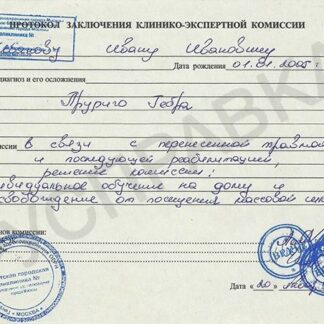 ПРОТОКОЛ ЗАКЛЮЧЕНИЯ КЛИНИКО-ЭКСПЕРТНОЙ КОМИССИИ
Ивану Ивановичу
Дата рождения 01.01.2005 г.
диагноз и его осложнения
Пруриго Гебра
миссии в связи с перенесенной травмой
и последующей реабилитацией,
решение комиссии:
ивидуальное обучение на дому и
свобождение от посещения массовой
нов комиссии:
тская городская
иклиника №
Дата «20»
УСПРАВКА